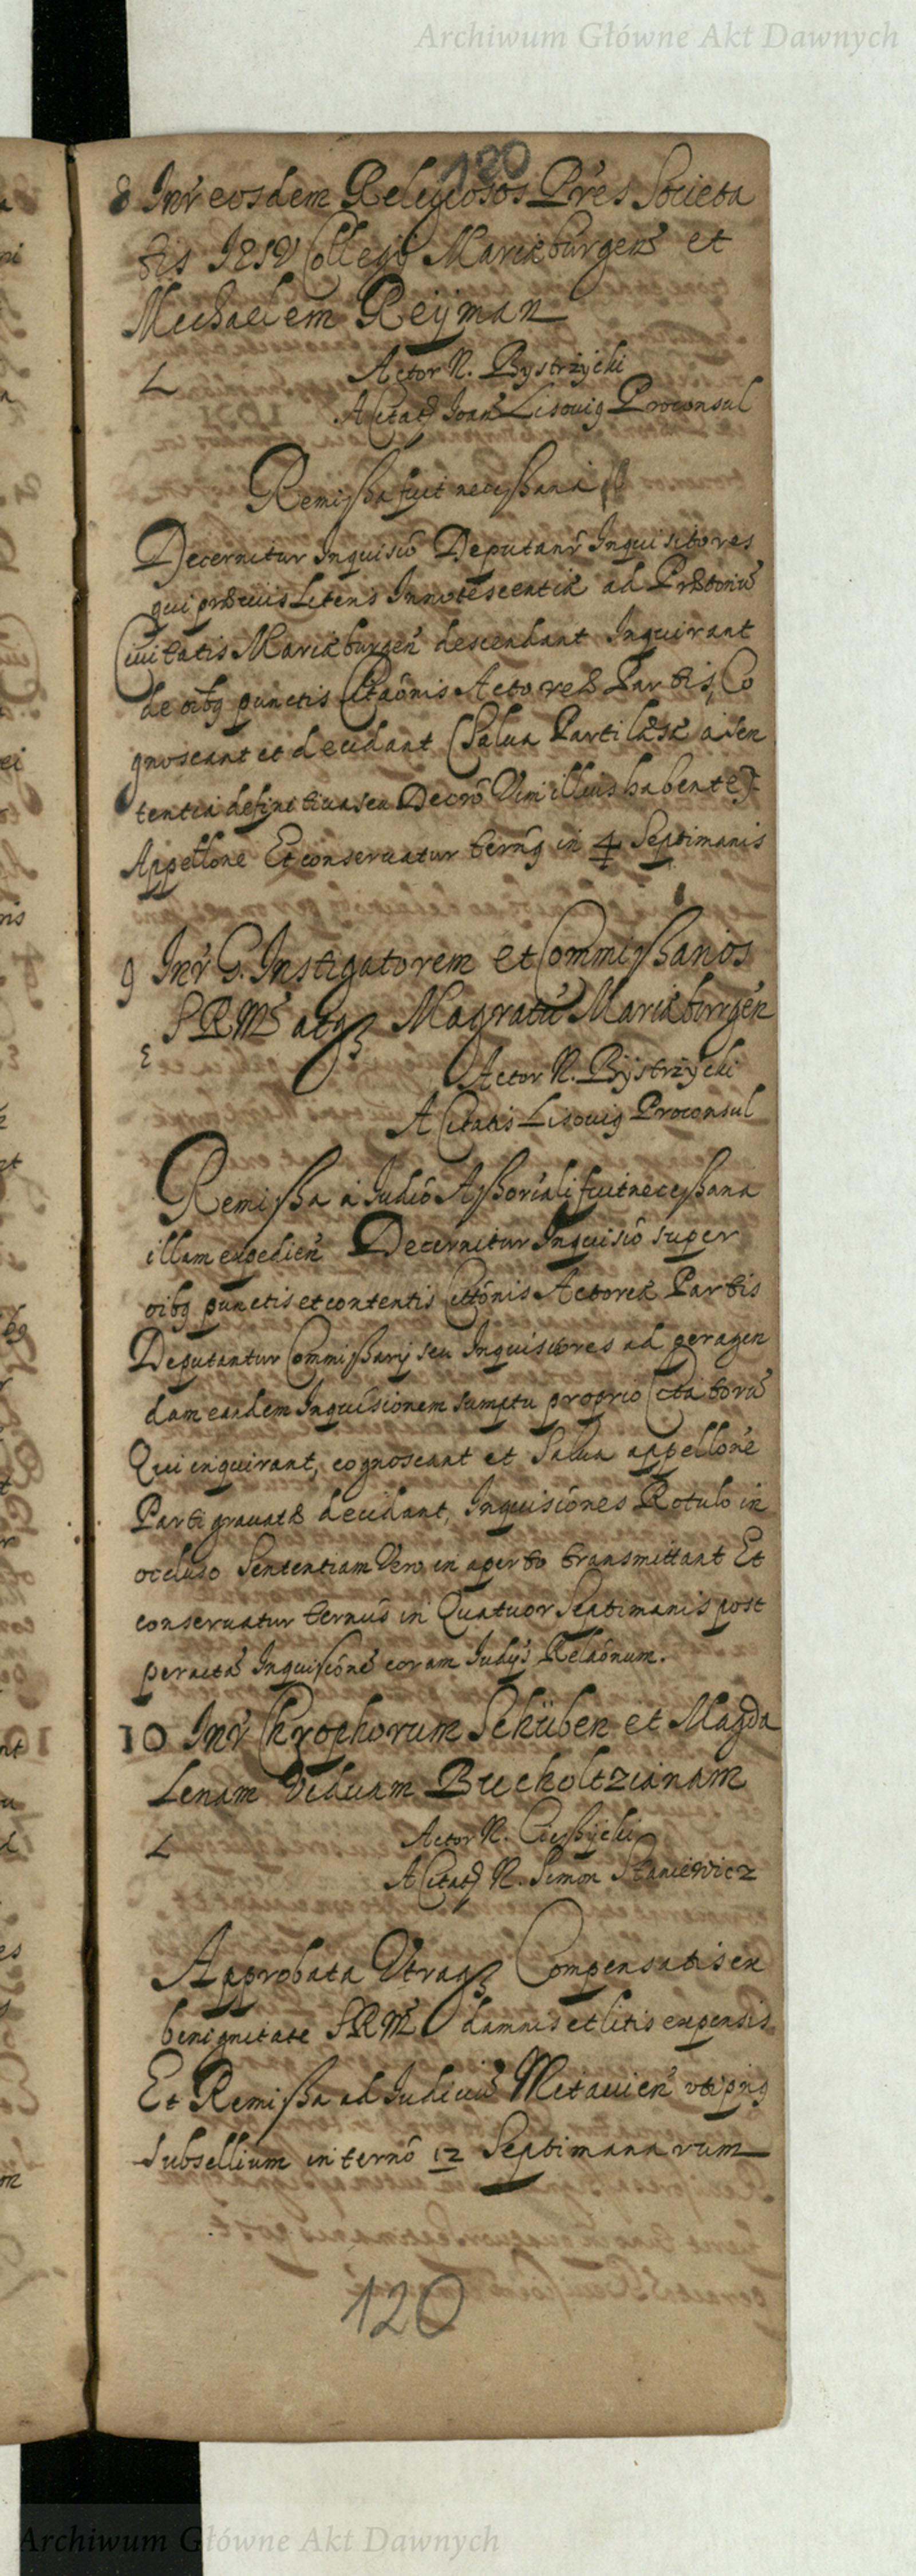 Archiwum Główne Akt Dawnych
120
8 Intr eosdem Religiosos Pres Societa
tis IESV Collegij Mariæburgens et
Michaelem Reijman
L Actor N. Bystrzycki
A Citatq Joan Lisouig Proconsul
Remissa fuit necessaria
Decernitur Inquisio Deputantr Inquisitores
qui præuiis Literis Innotescentiæ ad Prætoriu
Ciuitatis Mariæburgen descendant Inquirant
de oibq punctis Citaônis Actoreæ Partis, Co
gnoscant et decidant (Salua Parti læsæ a sen
tentia definitiua seu Decrô Vim illius habente)
Appellone Et conseruatur ternq in 4 Septimanis
9 Intr G. Instigatorem et Commissarios
SRMs atqz Magratu Mariæburgen
Actor N. Bystrzycki
A Citatis Lisouig Proconsul
Remissa a Judiô Assoriali fuit necessaria
illam expedien Decernitur Inquisiô super
oibq punctis et contentis Cittônis Actoreæ Partis
Deputantur Commissarij seu Inquisitores ad peragen
dam eandem Inquisionem sumptu proprio Citatoru
Qui inquirant, cognoscant et Salua appellone
Parti grauatæ decidant, Inquisiones Rotulo in
occluso Sententiam Vero in aperto transmittant Et
conseruatur ternus in Quatuor Septimanis post
peracta Inquisione coram Judijs Relaônum.
10 Intr Chrophorum Schüben et Magda
lenam Viduam Bucholtzianam
L Actor N. Ciessijcki
A Citatq N. Simon Staniewicz
Approbata Vtraqz Compensatis ex
benignitate SRMs damnis et litis expensis
Et Remissa ad Judiciu Metauien vti pnq
subsellium in ternô 12 Septimanarum
120
Archiwum Główne Akt Dawnych